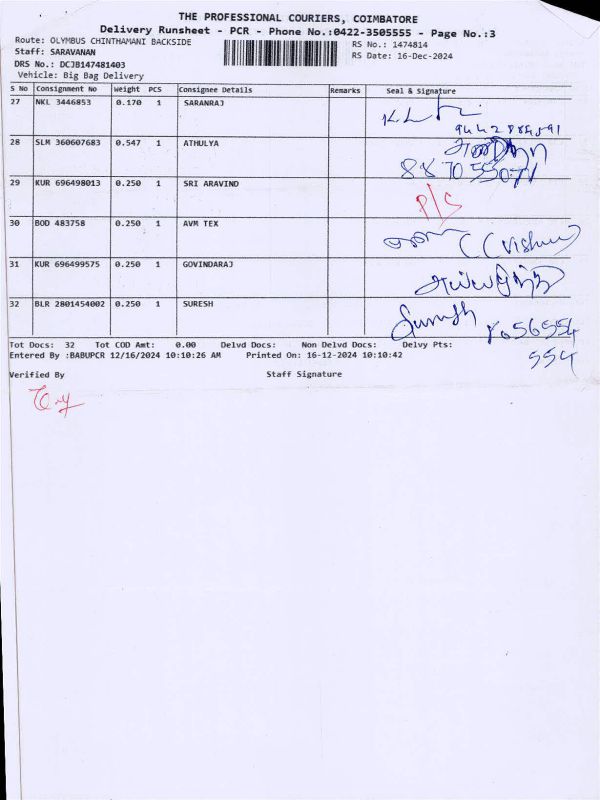 THE PROFESSIONAL COURIERS, COIMBATORE
Delivery Runsheet - PCR - Phone No.:0422-3505555 - Page No.:3
Route: OLYMBUS CHINTHAMANI BACKSIDE
RS No.: 1474814
Staff: SARAVANAN
RS Date: 16-Dec-2024
DRS No.: DCJB147481403
Vehicle: Big Bag Delivery
S No Consignment No Weight PCS Consignee Details Remarks Seal & Signature
27 NKL 3446853 0.170 1 SARANRAJ
28 SLM 360607683 0.547 1 ATHULYA
88705 55071
29 KUR 696498013 0.250 1 SRI ARAVIND P/S
30 BOD 483758 0.250 1 AVM TEX (C Vishnu)
31 KUR 696499575 0.250 1 GOVINDARAJ
32 BLR 2801454002 0.250 1 SURESH Suresh
554
Tot Docs: 32 Tot COD Amt: 0.00 Delvd Docs: Non Delvd Docs: Delvy Pts:
Entered By :BABUPCR 12/16/2024 10:10:26 AM Printed On: 16-12-2024 10:10:42
Verified By Staff Signature